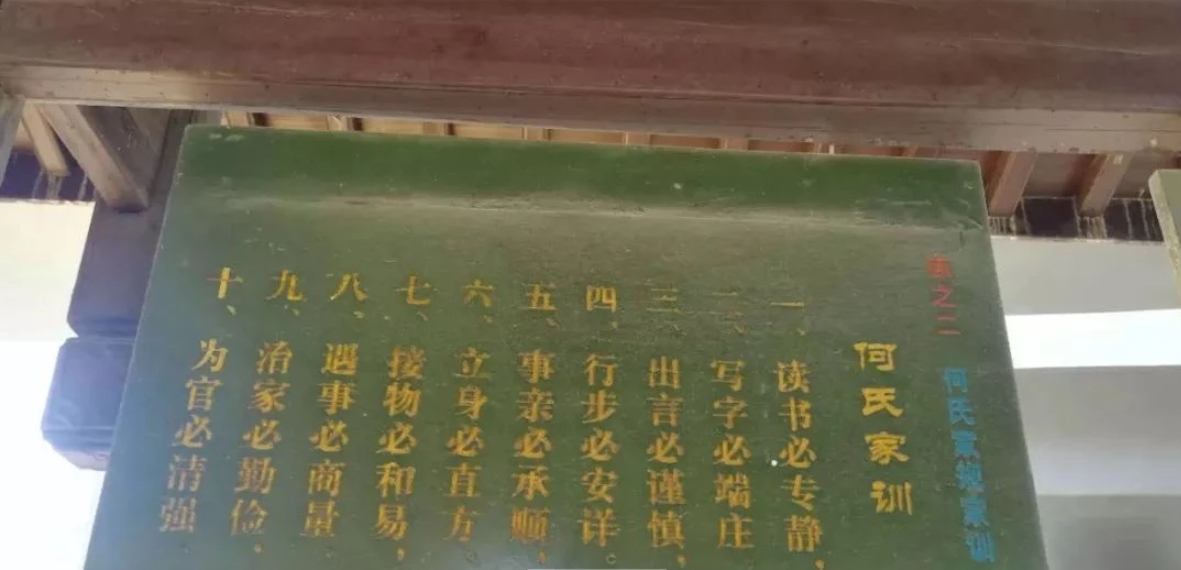 之二 何氏家规家训
何氏家训
一、读书必专静，
二、写字必端庄
三、出言必谨慎，
四、行步必安详。
五、事亲必承顺，
六、立身必直方
七、接物必和易，
八、遇事必商量
九、治家必勤俭，
十、为官必清强